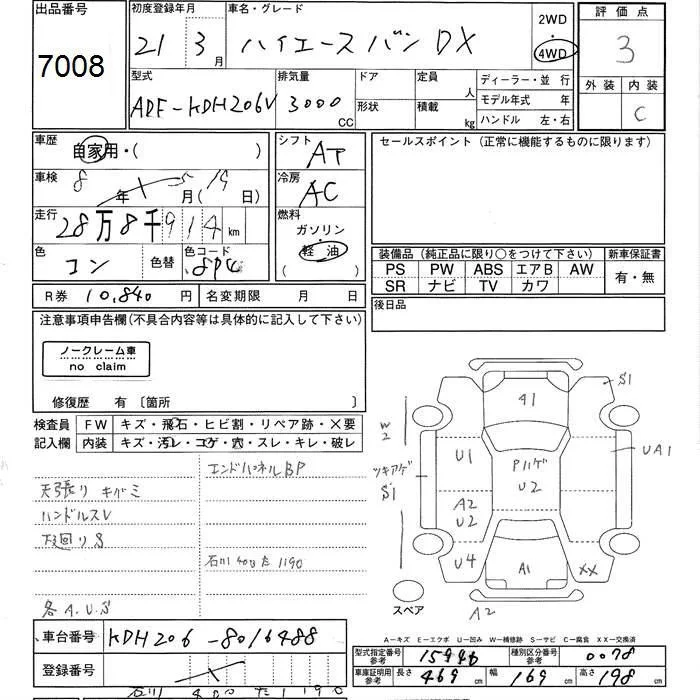 出品番号
7008
初度登録年月
21 3月
車名・グレード
ハイエースバン DX
2WD
・
4WD
評価点
3
外装 内装
C
型式
ADF-KDH206V
排気量
3000
CC
ドア
形状
定員
人
積載
kg
ディーラー・並行
モデル年式 年
ハンドル 左・右
車歴
自家用・( )
車検
8年 1 5月(19日)
走行
28万8千914km
色
コン
色替
色コード
8P4
シフト
AT
冷房
AC
燃料
ガソリン
・
軽油
( )
セールスポイント (正常に機能するものに限ります)
装備品 (純正品に限り○をつけて下さい)
PS PW ABS エアB AW
SR ナビ TV カワ
新車保証書
有・無
R券 10,840 円
名変期限 月 日
後日品
注意事項申告欄(不具合内容等は具体的に記入して下さい)
ノークレーム車
no claim
修復歴 有 〔箇所 〕
検査員
記入欄
FW キズ・飛石・ヒビ割・リペア跡・X要
内装 キズ・汚レ・コゲ・穴・スレ・キレ・破レ
エンドパネルBP
天張り キバミ
ハンドルスレ
下廻り S
石川 400 た 1190
各 A.U.S
S1
41
W2
U1
Pハゲ
U2
UA1
ツキアゲ
S1
A2
U2
U4
A1
XX
スペア
A2
A-キズ E-エクボ U-凹み W-補修跡 S-サビ C-腐食 XX-交換済
車台番号
KDH206-8016488
登録番号
石川 400 た 1190
型式指定番号
参考
15946
種別区分番号
参考
0078
車庫証明用
参考
長さ 469cm
幅 169cm
高さ 198cm